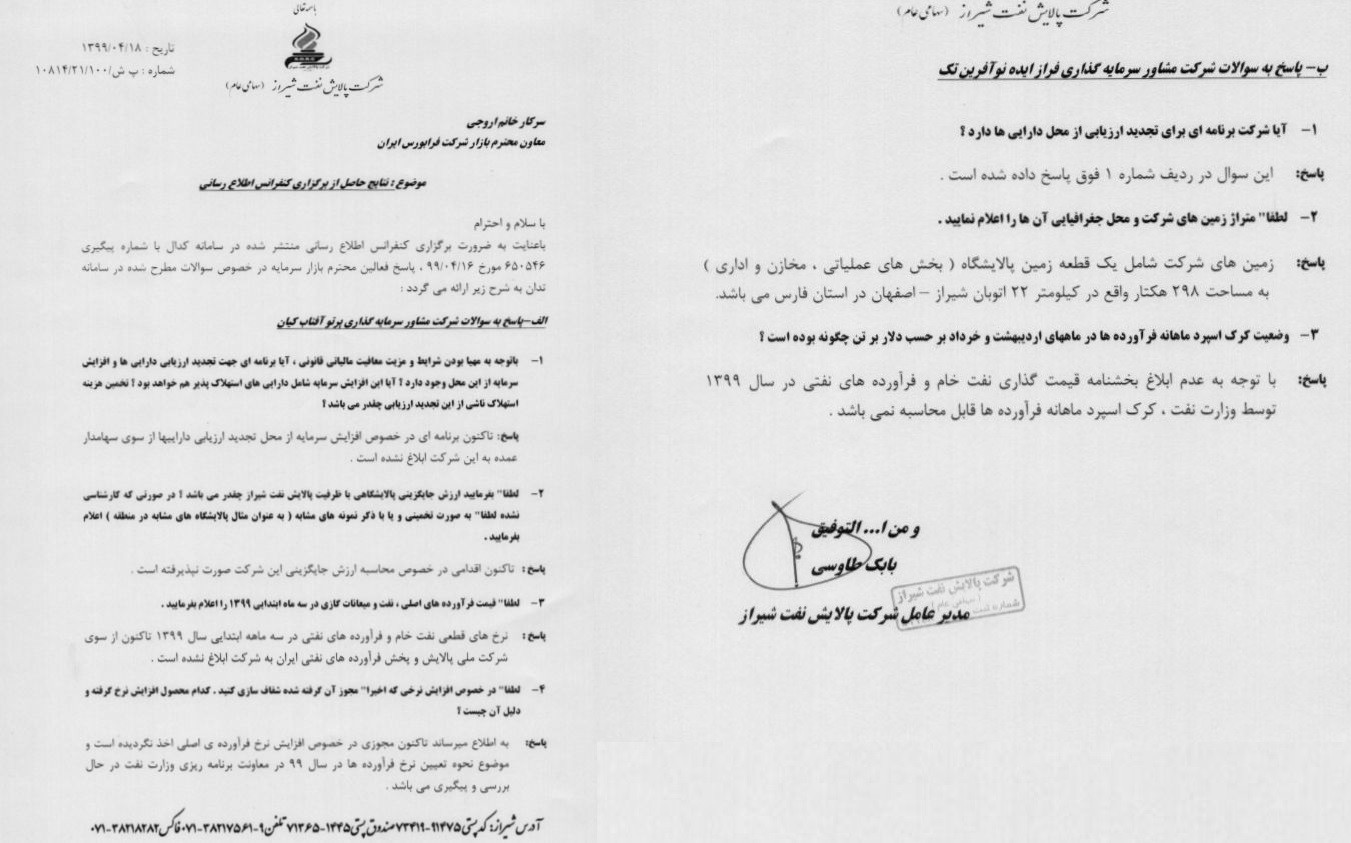 باسمه تعالی
تاریخ : ۱۳۹۹/۰۴/۱۸
شماره : پ ش/۱۰۸۱۴/۲۱/۱۰۰
شرکت پالایش نفت شیراز (سهامی عام)
سرکار خانم اروجی
معاون محترم بازار شرکت فرابورس ایران
موضوع : نتایج حاصل از برگزاری کنفرانس اطلاع رسانی
با سلام و احترام
باعنایت به ضرورت برگزاری کنفرانس اطلاع رسانی منتشر شده در سامانه کدال با شماره پیگیری
۶۵۰۵۴۶ مورخ ۹۹/۰۴/۱۶ ، پاسخ فعالین محترم بازار سرمایه در خصوص سوالات مطرح شده در سامانه
تدان به شرح زیر ارائه می گردد :
الف-پاسخ به سوالات شرکت مشاور سرمایه گذاری پرتو آفتاب کیان
۱- باتوجه به مهیا بودن شرایط و مزیت معافیت مالیاتی قانونی ، آیا برنامه ای جهت تجدید ارزیابی دارایی ها و افزایش
سرمایه از این محل وجود دارد ؟ آیا این افزایش سرمایه شامل دارایی های استهلاک پذیر هم خواهد بود ؟ تخمین هزینه
استهلاک ناشی از این تجدید ارزیابی چقدر می باشد ؟
پاسخ : تاکنون برنامه ای در خصوص افزایش سرمایه از محل تجدید ارزیابی داراییها از سوی سهامدار
عمده به این شرکت ابلاغ نشده است .
۲- لطفا" بفرمایید ارزش جایگزینی پالایشگاهی با ظرفیت پالایش نفت شیراز چقدر می باشد ؟ در صورتی که کارشناسی
نشده لطفا" به صورت تخمینی و یا با ذکر نمونه های مشابه ( به عنوان مثال پالایشگاه های مشابه در منطقه ) اعلام
بفرمایید .
پاسخ : تاکنون اقدامی در خصوص محاسبه ارزش جایگزینی این شرکت صورت نپذیرفته است .
۳- لطفا" قیمت فرآورده های اصلی ، نفت و میعانات گازی در سه ماه ابتدایی ۱۳۹۹ را اعلام بفرمایید .
پاسخ : نرخ های قطعی نفت خام و فرآورده های نفتی در سه ماهه ابتدایی سال ۱۳۹۹ تاکنون از سوی
شرکت ملی پالایش و پخش فرآورده های نفتی ایران به شرکت ابلاغ نشده است .
۴- لطفا" در خصوص افزایش نرخی که اخیرا" مجوز آن گرفته شده شفاف سازی کنید . کدام محصول افزایش نرخ گرفته و
دلیل آن چیست ؟
پاسخ: به اطلاع میرساند تاکنون مجوزی در خصوص افزایش نرخ فرآورده ی اصلی اخذ نگردیده است و
موضوع نحوه تعیین نرخ فرآورده ها در سال ۹۹ در معاونت برنامه ریزی وزارت نفت در حال
بررسی و پیگیری می باشد .
آدرس شیراز: کدپستی ۹۱۴۷۵-۷۳۴۱۹ صندوق پستی ۱۴۴۵-۷۱۳۶۵ تلفن ۹-۳۸۲۱۷۵۶۱-۰۷۱ فاکس ۳۸۲۱۸۲۸۲-۰۷۱
شرکت پالایش نفت شیراز (سهامی عام)
ب- پاسخ به سوالات شرکت مشاور سرمایه گذاری فراز ایده نوآفرین تک
۱- آیا شرکت برنامه ای برای تجدید ارزیابی از محل دارایی ها دارد ؟
پاسخ: این سوال در ردیف شماره ۱ فوق پاسخ داده شده است .
۲- لطفا" متراژ زمین های شرکت و محل جغرافیایی آن ها را اعلام نمایید .
پاسخ: زمین های شرکت شامل یک قطعه زمین پالایشگاه ( بخش های عملیاتی ، مخازن و اداری )
به مساحت ۲۹۸ هکتار واقع در کیلومتر ۲۲ اتوبان شیراز – اصفهان در استان فارس می باشد.
۳- وضعیت کرک اسپرد ماهانه فرآورده ها در ماههای اردیبهشت و خرداد بر حسب دلار بر تن چگونه بوده است ؟
پاسخ: با توجه به عدم ابلاغ بخشنامه قیمت گذاری نفت خام و فرآورده های نفتی در سال ۱۳۹۹
توسط وزارت نفت ، کرک اسپرد ماهانه فرآورده ها قابل محاسبه نمی باشد .
و من ا... التوفیق
بابک طاوسی
مدیر عامل شرکت پالایش نفت شیراز
شرکت پالایش نفت شیراز
سهامی عام
شماره ثبت